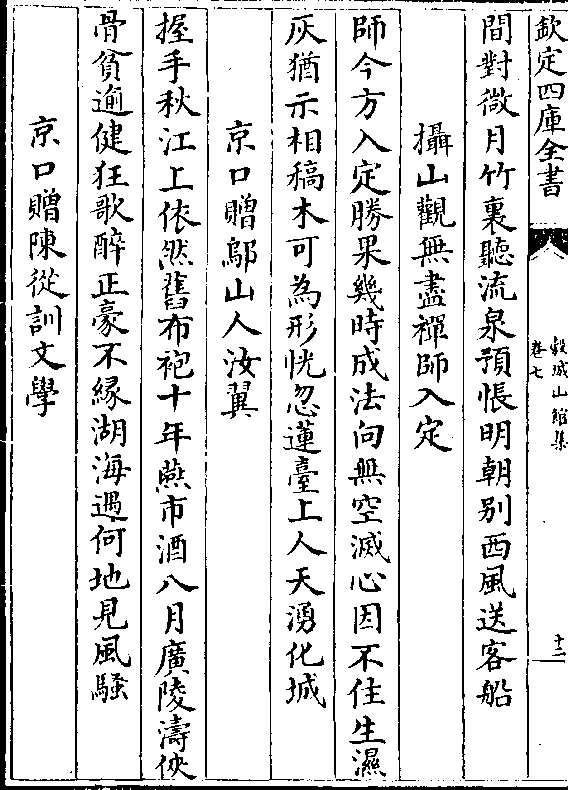 欽定四庫全書
穀城山館集
卷七
十二
間對微月竹裏聽流泉預悵明朝别西風送客船
攝山觀無盡禪師入定
師今方入定勝果幾時成法向無空滅心因不住生濕
灰猶示相稿木可為形恍忽蓮臺上人天湧化城
京口贈鄔山人汝翼
握手秋江上依然舊布袍十年燕市酒八月廣陵濤俠
骨貧逾健狂歌醉正豪不緣湖海遇何地見風騷
京口贈陳從訓文學